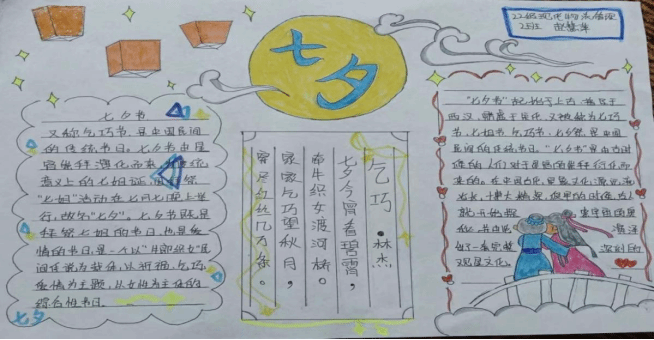 七夕
22级现代物流管理
2班
七夕节
又称乞巧节,是中国民间
的传统节日。七夕节由星
宿崇拜演化而来,为传统
意义上的七姐诞,因拜祭
"七姐"活动在七月七晚上举
行,故名"七夕"。七夕节既是
拜祭七姐的节日,也是爱
情的节日,是一个以"牛郎织女"民
间传说为载体,以祈福、乞巧、
爱情为主题,以女性为主体的
综合性节日
七夕
乞巧·林杰
七夕今宵看碧霄,
牵牛织女渡河桥。
家家乞巧望秋月,
穿尽红丝几万条。
"七夕节"起始于上古,普及于
西汉,鼎盛于宋代,又被称为乞巧
节、七姐节
的人们对于星宿的崇拜衍化而
来的。在中国古代
观星文化。